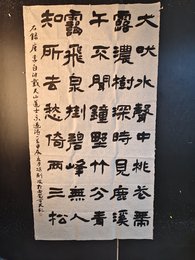 犬吠水聲中桃花帶
露濃樹深時見鹿溪
午不聞鐘野竹分青
靄飛泉掛碧峰無人
知所去愁倚兩三松
右錄唐李白訪戴天山道士不遇詩一首